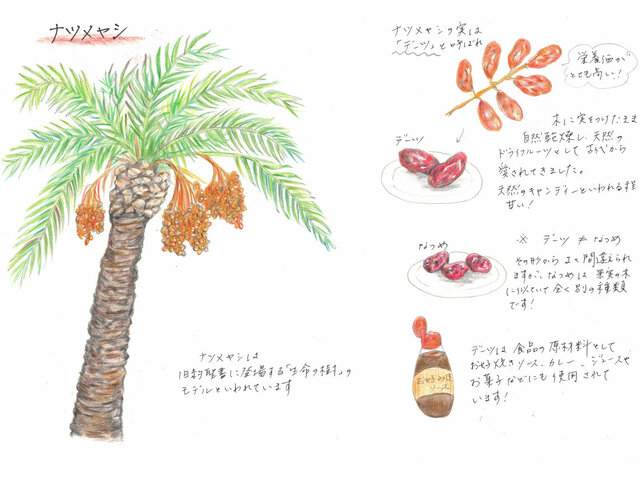 ナツメヤシ
ナツメヤシは
旧約聖書に登場する「生命の樹」の
モデルといわれています
ナツメヤシの実は
「デーツ」と呼ばれ
栄養価が
とても高い！
木に実をつけたまま
自然乾燥し、天然の
ドライフルーツとして
愛されてきました。
天然のキャンディーといわれる程
甘い！
デーツ
なつめ
※ デーツ ≠ なつめ
その形から よく間違えられ
ますが、なつめは 果実の木
に似ていて全く別の種類
です！
デーツは 食品の原材料として
お好み焼きソース、カレー、ジュースや
お菓子などにも使用されて
います！
お好み焼
ソース